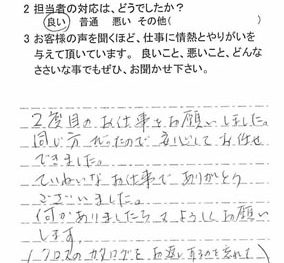 2 担当者の対応は、どうでしたか？
良い 普通 悪い その他(
3 お客様の声を聞くほど、仕事に情熱とやりがいを
与えて頂いています。 良いこと、悪いこと、どんな
ささいな事でもぜひ、お聞かせ下さい。
2度目のお仕事をお願いしました。
同じ方だったので安心してお任せ
できました。
ていねいなお仕事でありがとう
ございました。
何かありましたらまたよろしくお願い
します。
(クロスのカタログをお返しするのを忘れて)